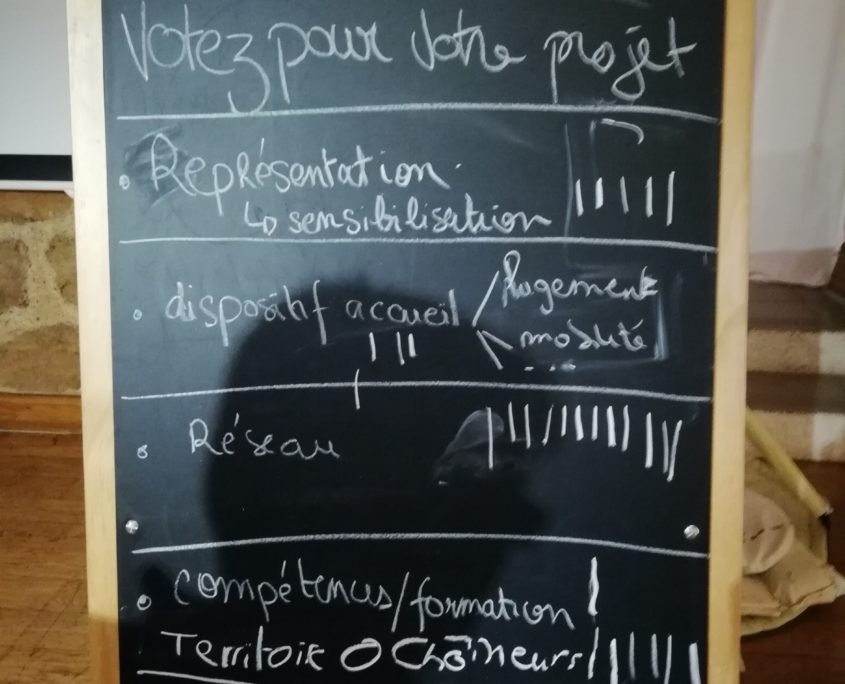 Votez pour votre projet
• Représentation
↳ sensibilisation
• dispositif accueil / logement
\ mobilité
...
• Réseau
• compétences/formation
Territoire O Chaîneurs